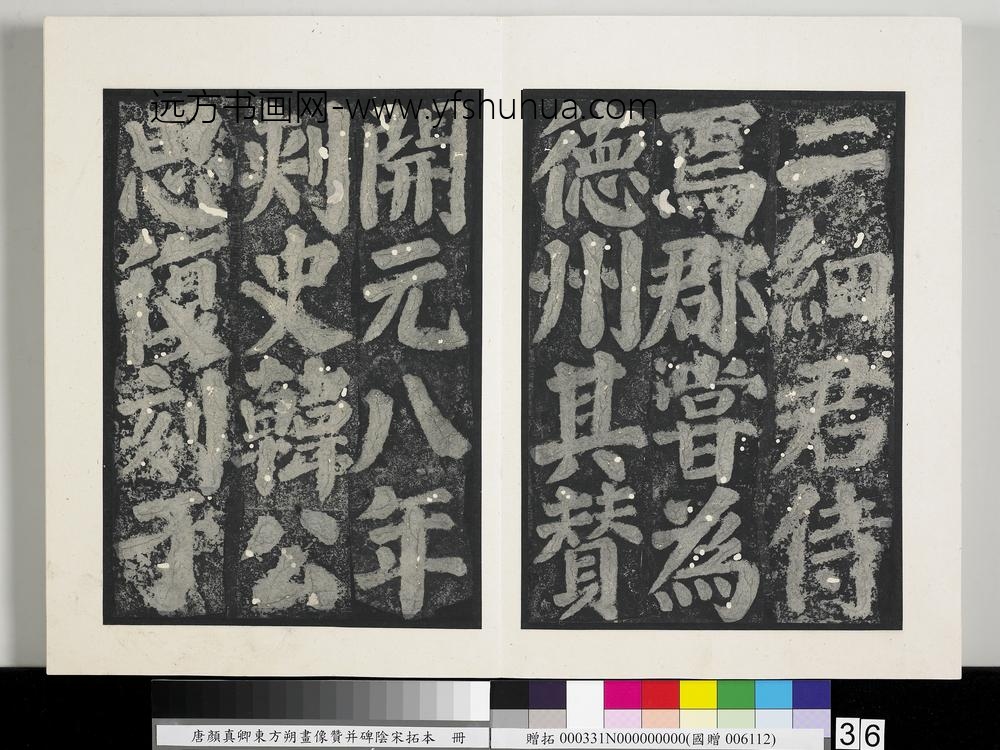 远方书画网-www.yfshuhua.com
二細君侍
焉郡嘗為
德州其贊
開元八年
刺史韓公
思復刻于
唐顏真卿東方朔畫像贊并碑陰宋拓本 冊
贈拓 000331N000000000(國贈 006112)
36